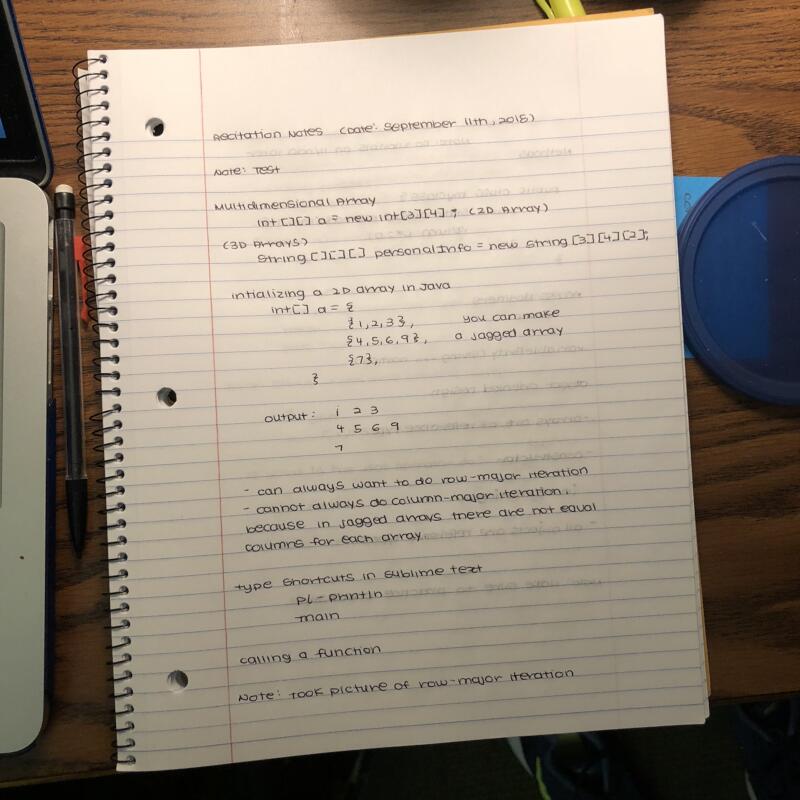 Recitation Notes (Date: September 11th, 2018)
Note: Test
Multidimensional Array
int [][] a = new int[3][4]; (2D Array)
(3D Arrays)
String [][][] personalInfo = new string [3][4][2];
intializing a 2D array in Java
int[] a = {
{1,2,3}, you can make
{4,5,6,9}, a jagged array
{7},
}
output: 1 2 3
4 5 6 9
7
- can always want to do row-major iteration
- cannot always do column-major iteration,
because in jagged arrays there are not equal
columns for each array.
type shortcuts in sublime text
pl - println
main
calling a function
Note: took picture of row-major iteration